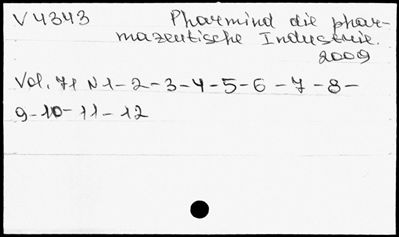 V 4343 Pharmind die phar-
mazeutische Industrie.
2009
Vol. 71 N 1-2-3-4-5-6-7-8-
9-10-11-12